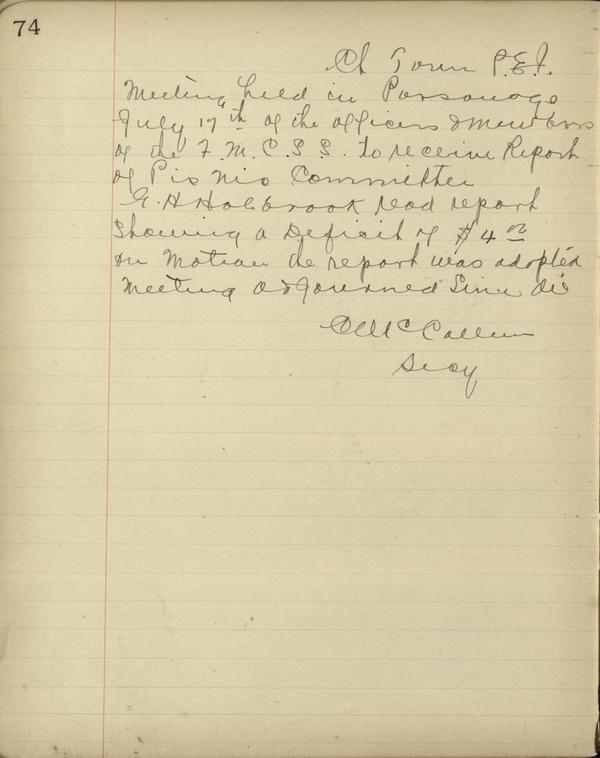 74
Ch Town P.E.I.
Meeting held in Parsonage
July 17th of the officers & members
of the F. M. C. S. S. to receive Report
of Pic Nic Committee
G. H Holbrook read report
Showing a Deficit of $4 00
on Motion the report was adopted
Meeting adjourned Sine die
McCallum
Secy